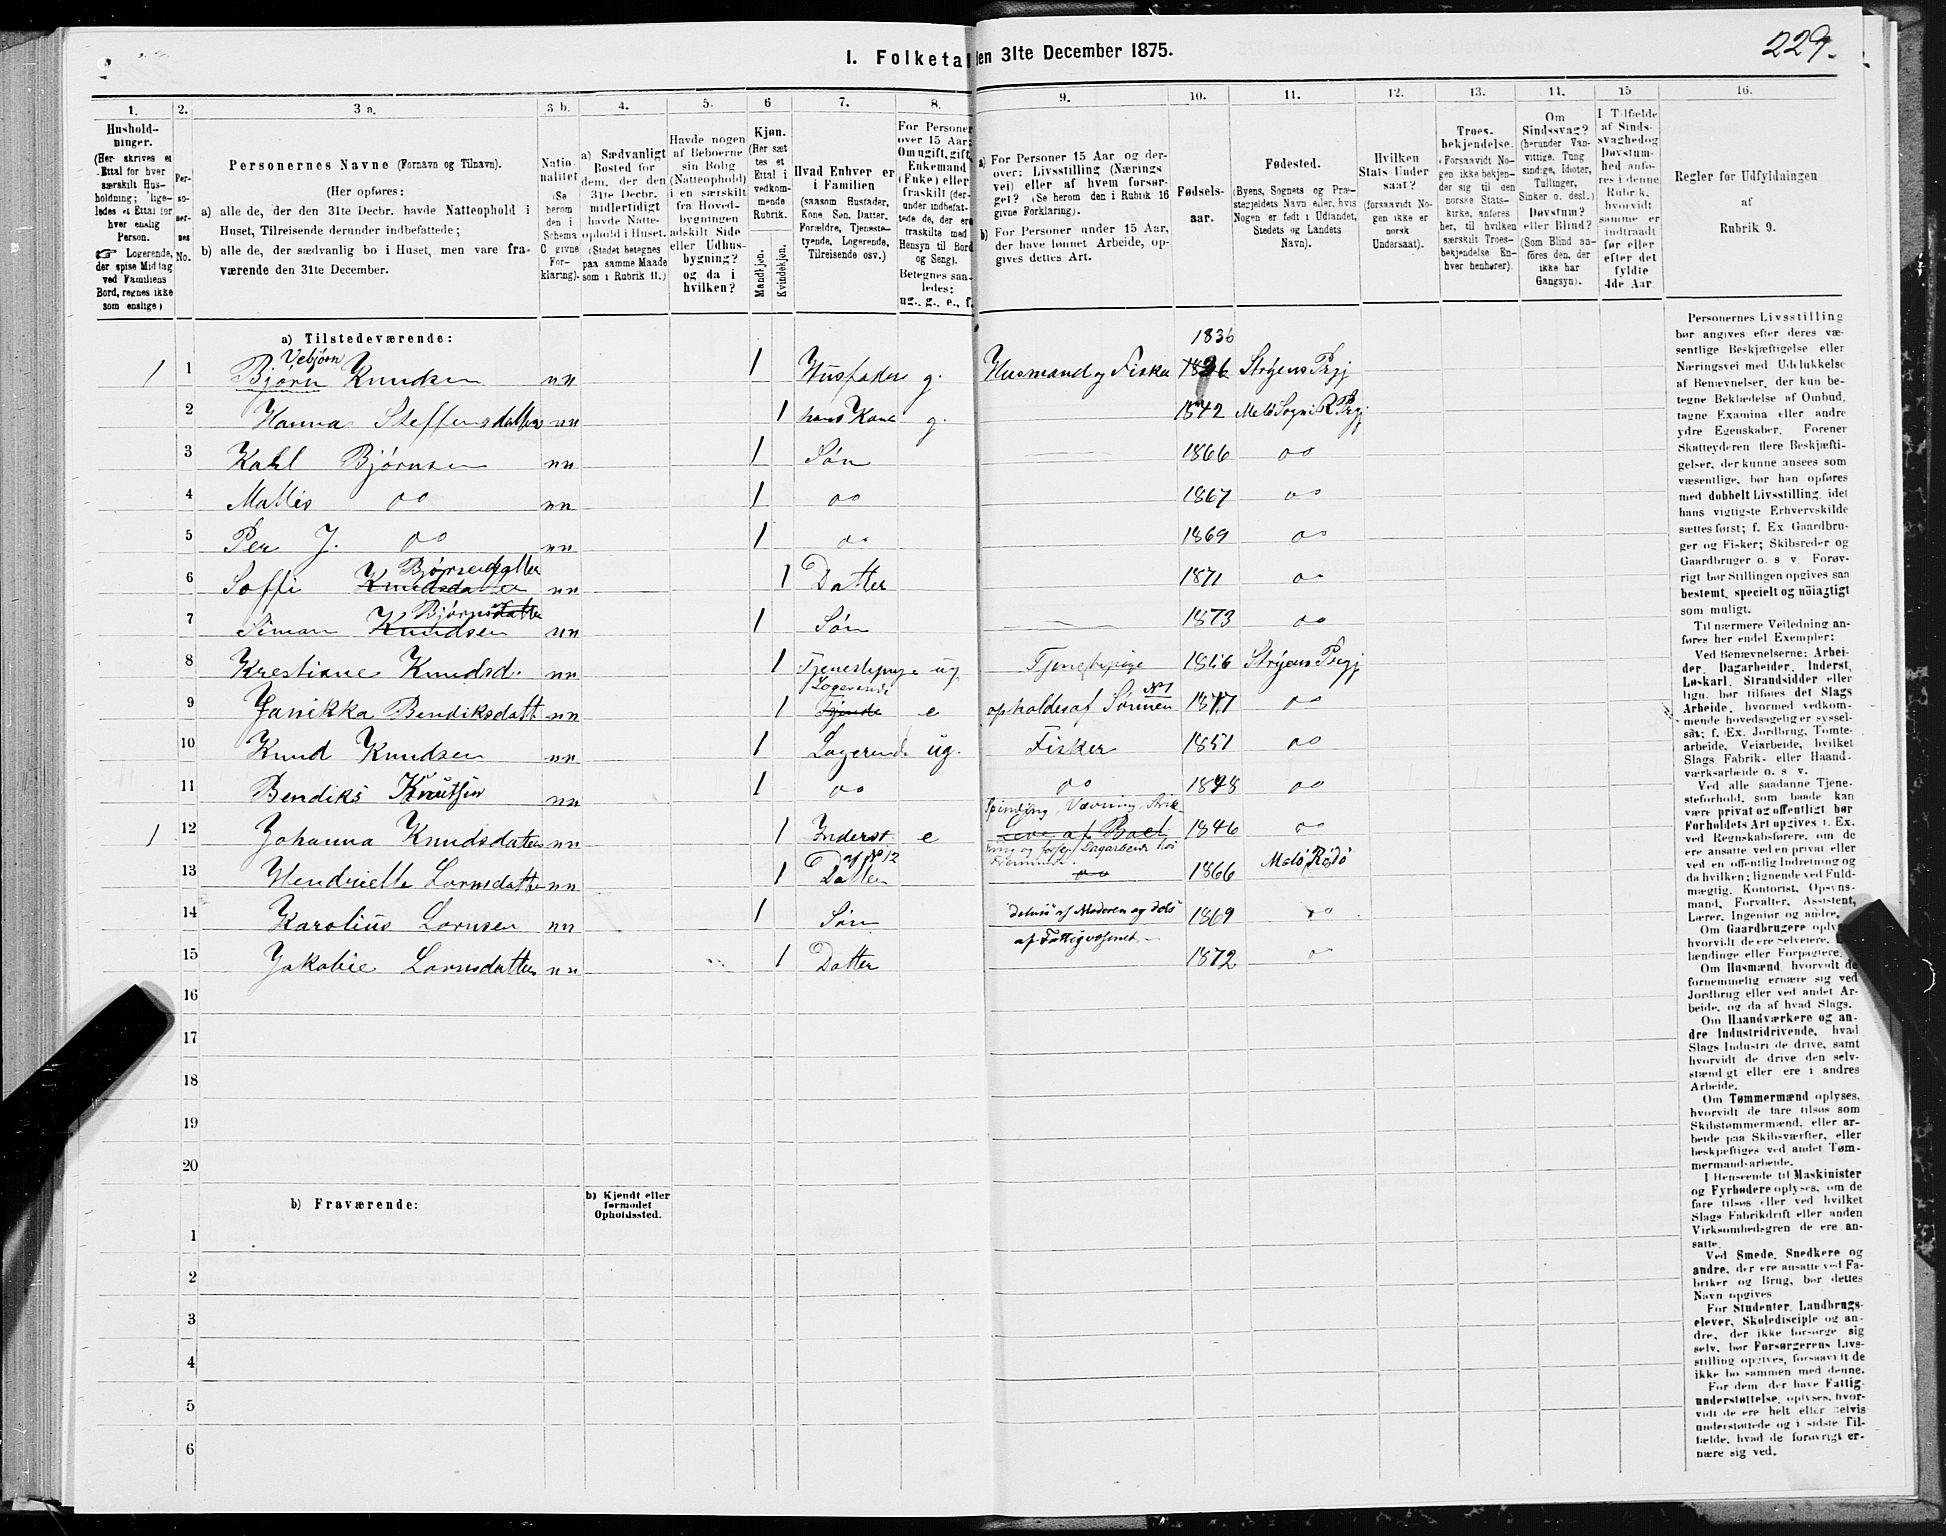 229.
I. Folketal den 31te December 1875.
1. 2. 3 a. 3 b. 4. 5. 6 7. 8. 9. 10. 11. 12. 13. 14. 15 16.
Hushold-
ninger.
(Her skrives et
Ettal for hver
særskilt Hus-
holdning; lige-
ledes et Ettal for
hver enslig
Person.
☞ Logerende,
der spise Middag
ved Familiens
Bord, regnes ikke
som enslige)
Per-
so-
ner-
nes
No.
Personernes Navne (Fornavn og Tilnavn).
(Her opføres:
a) alle de, der den 31te Decbr. havde Natteophold i
Huset, Tilreisende derunder indbefattede;
b) alle de, der sædvanlig bo i Huset, men vare fra-
værende den 31te December.
Natio-
nalitet
(Se
herom
den i
Schema
C givne
For-
klaring).
a) Sædvanligt
Bosted for
dem, der den
31te Decbr.
midlertidigt
havde Natte-
ophold i Huset.
(Stedet betegnes
paa samme Maade
som i Rubrik 11.)
Havde nogen
af Beboerne
sin Bolig
(Natteophold)
i en særskilt
fra Hoved-
bygningen
adskilt Side
eller Udhus-
bygning?
og da i
hvilken?
Kjøn.
(Her sæt
tes et
Ettal i
vedkom-
mende
Rubrik.
Mandkjøn.
Kvindekjøn.
Hvad Enhver er
i Familien
(saasom Husfader,
Kone, Søn, Datter,
Forældre, Tjeneste-
tyende, Logerende,
Tilreisende osv.)
For Personer
over 15 Aar:
Om ugift, gift,
Enkemand
(Enke) eller
fraskilt (der-
under indbefat-
tede de, der ere
fraskilte med
Hensyn til Bord
og Seng).
Betegnes saa-
ledes:
ug., g., e., f.
a) For Personer 15 Aar og der-
over: Livsstilling (Nærings
vei) eller af hvem forsør-
get? (Se herom den i Rubrik 16
givne Forklaring).
b) For Personer under 15 Aar,
der have lønnet Arbeide, op-
gives dettes Art.
Fødsels-
aar.
Fødested.
(Byens, Sognets og Præ-
stegjeldets Navn eller, hvis
Nogen er født i Udlandet,
Stedets og Landets
Navn).
Hvilken
Stats Under
saat?
(forsaavidt No-
gen ikke er
norsk
Undersaat).
Troes-
bekjendelse.
(Forsaavidt No-
gen ikke bekjen-
der sig til den
norske Stats-
kirke, anføres
her, til hvilken
særskilt Troes-
bekjendelse En-
hver henhører).
Om
Sindssvag?
(herunder Van-
vittige, Tung
sindige, Idioter,
Tullinger,
Sinker o. desl.)
Døvstum?
eller Blind?
(Som Blind an-
føres den, der
ikke har
Gangsyn).
I Tilfælde
af Sinds-
svaghed og
Døvstum-
hed anfø-
res i denne
Rubrik,
hvorvidt
samme er
indtraadt
før eller
efter det
fyldte
4de Aar.
Regler for Udfyldningen
af
Rubrik 9.
a) Tilstedeværende:
1836
Vebjørn
1 1 Bjørn Knudsen nn 1 Husfader g. Husmand og Fisker 1836 Stryens Prgj
2 Hanna Steffensdatter nn 1 hans Kone g. 1842 Melö Sogn R Prgj
3 Kahl Bjørnsen nn 1 Søn 1866 oo
4 Mattis oo nn 1 oo 1867 oo
5 Per J. oo nn 1 oo 1869 oo
6 Soffi Knudsdatter nn 1 Datter 1871 oo
7 Siman Knudsen nn 1 Søn 1873 oo
8 Krestiane Knudsd. nn 1 Tjenestepige ug. Tjenestepige 1856 Stryens Prgj
Logerende No 1
9 Janikka Bendiksdatt nn 1 e opholdes af Sønnen 1817 oo
10 Knud Knudsen nn 1 Logerende ug. Fisker 1851 oo
11 Bendiks Knutsen nn 1 oo oo 1848 oo
Spinding, Vævning, Strik-
1 12 Johanna Knudsdatter nn 1 Inderst e 1846 oo
af No 12
13 Hendriette Lornsdatter nn 1 Datter oo 1866 Melö Rödö
14 Karolius Lornsen nn 1 Søn delvis af Moderen og dels 1869 oo
af Fattigvæsenet
15 Jakobie Lornsdatter nn 1 Datter 1872 o
16
17
18
19
20
b) Fraværende:
b) Kjendt eller
formodet
Opholdssted.
1
2
3
4
5
6
Personernes Livsstilling
bør angives efter deres væ-
sentlige Beskjæftigelse eller
Næringsvei med Udelukkelse
af Benævnelser, der kun be-
tegne Beklædelse af Ombud,
tagne Examina eller andre
ydre Egenskaber. Forener
Skatteyderen flere Beskjæfti-
gelser, der kunne ansees som
væsentlige, bør han opføres
med dobbelt Livsstilling, idet
hans vigtigste Erhvervskilde
sættes først; f. Ex Gaardbru-
ger og Fisker; Skibsreder og
Gaardbruger o. s v Forøv-
rigt bør Stillingen opgives saa
bestemt, specielt og nöiagtigt
som muligt.
Til nærmere Veiledning an-
føres her endel Exempler:
Ved Benævnelserne: Arbei-
der, Dagarbeider, Inderst,
Løskarl, Strandsidder eller
lign. bør tilføies det Slags
Arbeide, hvormed vedkom-
mende hovedsagelig er syssel-
sat; f. Ex. Jordbrug, Tomte-
arbeide, Veiarbeide, hvilket
Slags Fabrik- eller Haand-
værksarbeide o. s. v.
Ved alle saadanne Tjene-
steforhold, som baade kan
være privat og offentligt, bør
Forholdets Art opgives f. Ex.
ved Regnskabsførere, om de
ere ansatte ved en privat eller
ved en offentlig Indretning og
da hvilken; lignende ved Fuld-
mægtig, Kontorist, Opsyns-
mand, Forvalter, Assistent,
Lærer, Ingeniør og andre.
Om Gaardbrugere oply-
hvorvidt de ere Selveiere,
lændinge eller Forpagtere.
Om Husmænd, hvorvidt de
fornemmelig ernære sig ved
Jordbrug eller ved andet Ar-
beide, og da af hvad Slags.
Om Haandværkere og an-
dre Industridrivende, hvad
Slags Industri de drive, samt
hvorvidt de drive den selv-
stændigt eller ere i andres
Arbeide.
Om Tømmermænd oplyses,
hvorvidt de fare tilsøs som
Skibstømmermænd, eller ar-
beide paa Skibsværfter, eller
beskjæftiges ved andet Tøm-
mermandarbeide.
I Henseende til Maskinister
og Fyrbødere oplyses, om de
fare tilsøs eller ved hvilket
Slags Fabrikdrift eller anden
Virksomhedsgren de ere an-
satte.
Ved Smede, Snedkere og
andre, der ere ansatte ved Fa-
briker og Brug, bør dettes
Navn opgives
For Studenter, Landbrugs-
elever, Skoledisciple og an-
dre, der ikke forsørge sig
selv, bør Forsørgerens Livs-
stilling opgives, forsaavidt de
ikke bo sammen med denne.
For dem, der have Fattig-
understøttelse, oplyses, hvor-
vidt de ere helt eller delvis
understøttede og i sidste Til-
fælde, hvad de forøvrigt er-
nære sig ved.